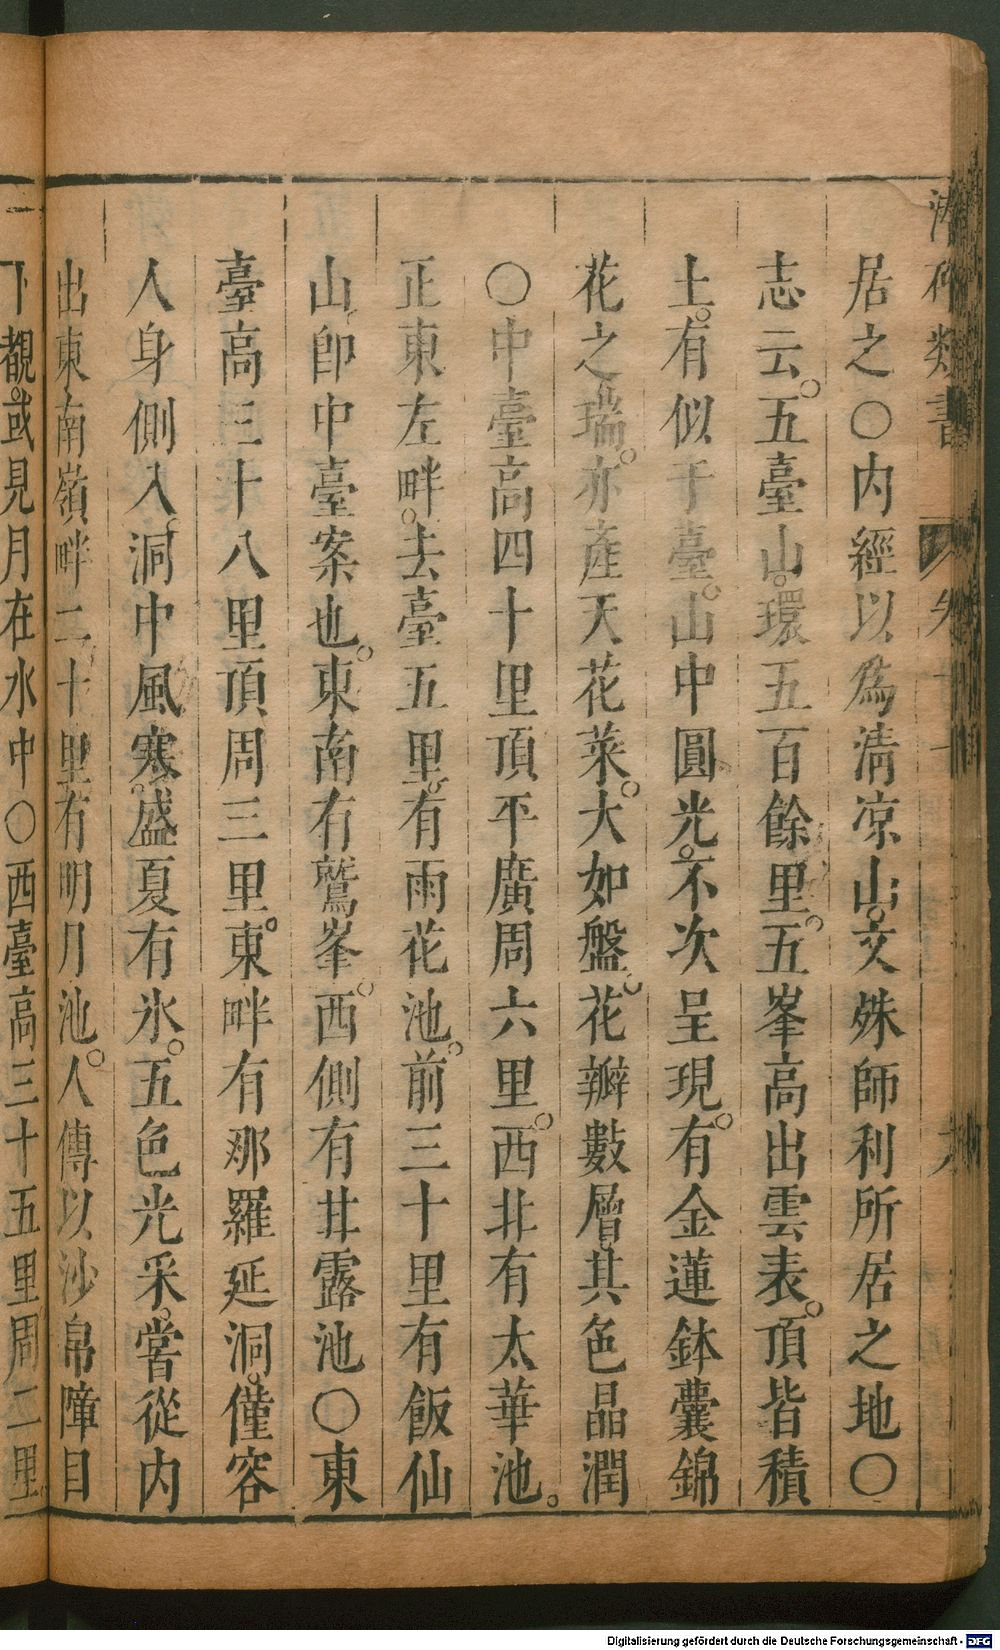 居之〇内經以為清凉山。文殊師利所居之地〇
志云。五臺山。環五百餘里。五峯高出雲表。頂皆積
土。有似于臺。山中圓光。不次呈現。有金蓮鉢囊錦
花之瑞。亦產天花菜。大如盤。花瓣數層。其色晶潤
〇中臺高四十里頂平廣周六里。西北有太華池。
正東左畔。去臺五里。有雨花池。前三十里有飯仙
山。卽中臺案也。東南有鷲峯。西側有甘露池〇東
臺高三十八里頂周三里。東畔有那羅延洞。僅容
人身側入。洞中風寒。盛夏有氷。五色光采。嘗從内
出東南嶺畔二十里有明月池。人傳以沙帛障目
下覩。或見月在水中〇西臺高三十五里周二里。
類書
Digitalisierung gefördert durch die Deutsche Forschungsgemeinschaft - DFG